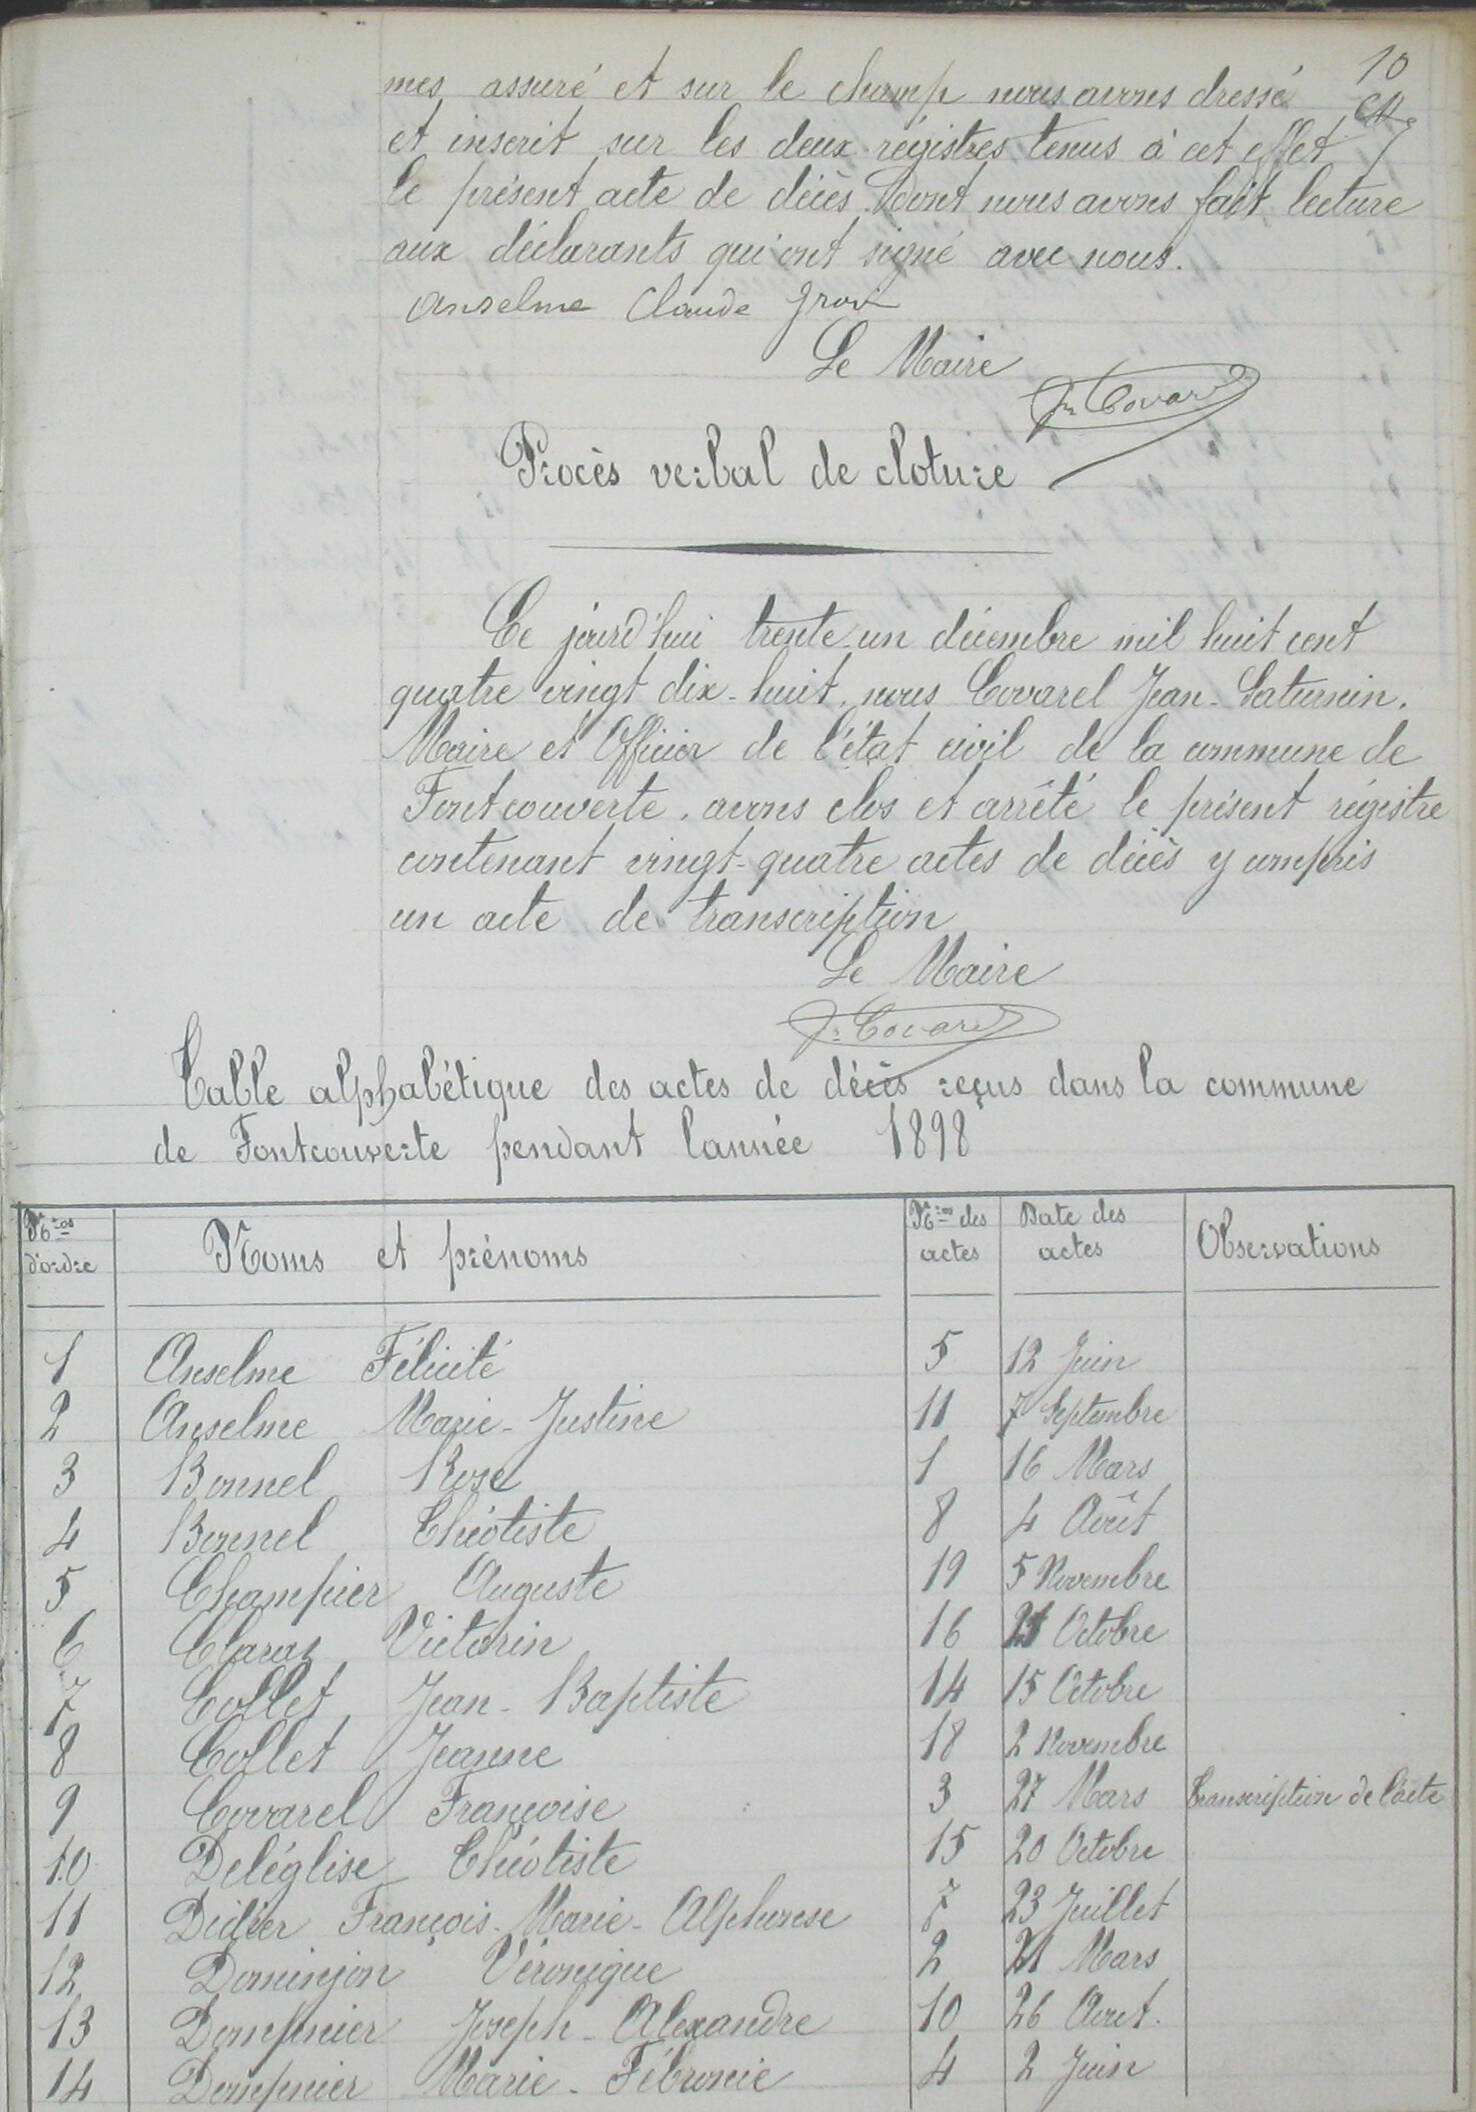 10
mes assuré et sur le champ nous avons dressé
et inscrit sur les deux régistres tenus à cet effet
le présent acte de décès. Dont nous avons fait lecture
aux déclarants qui ont signé avec nous.
Anselme Claude
Le Maire
Jn Covarel
Procès verbal de cloture
Ce jourd'hui trente-un décembre mil huit cent
quatre vingt dix-huit, nous Covarel Jean-Saturnin,
Maire et Officier de l'état civil de la commune de
Fontcouverte, avons clos et arrêté le présent régistre
contenant vingt-quatre actes de décès y compris
un acte de transcription
Le Maire
Jn Covarel
Table alphabétique des actes de décès reçus dans la commune
de Fontcouverte pendant l'année 1898
Nros d'ordre Noms et prénoms Nros des actes Date des actes Observations
1 Anselme Félicité 5 12 Juin
2 Anselme Marie-Justine 11 7 Septembre
3 Bonnel Rose 1 16 Mars
4 Bonnel Théotiste 8 4 Août
5 Champier Auguste 19 5 Novembre
6 Claraz Victorin 16 21 Octobre
7 Collet Jean-Baptiste 14 15 Octobre
8 Collet Jeanne 18 2 Novembre
9 Covarel Françoise 3 27 Mars Transcription de l'acte
10 Deléglise Théotiste 15 20 Octobre
11 Didier François-Marie-Alphonse 7 23 Juillet
12 Dominjon Véronique 2 21 Mars
13 Dompnier Joseph-Alexandre 10 26 Aout.
14 Dompnier Marie-Fébronie 4 2 Juin